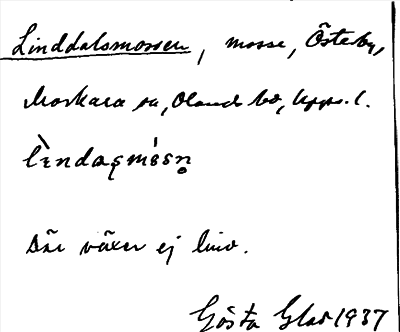 Linddalsmossen, mosse, Österby,
Morkarla sn, Olands hd, Upps. l.
Där växer ej lind.
Gösta Glas 1937